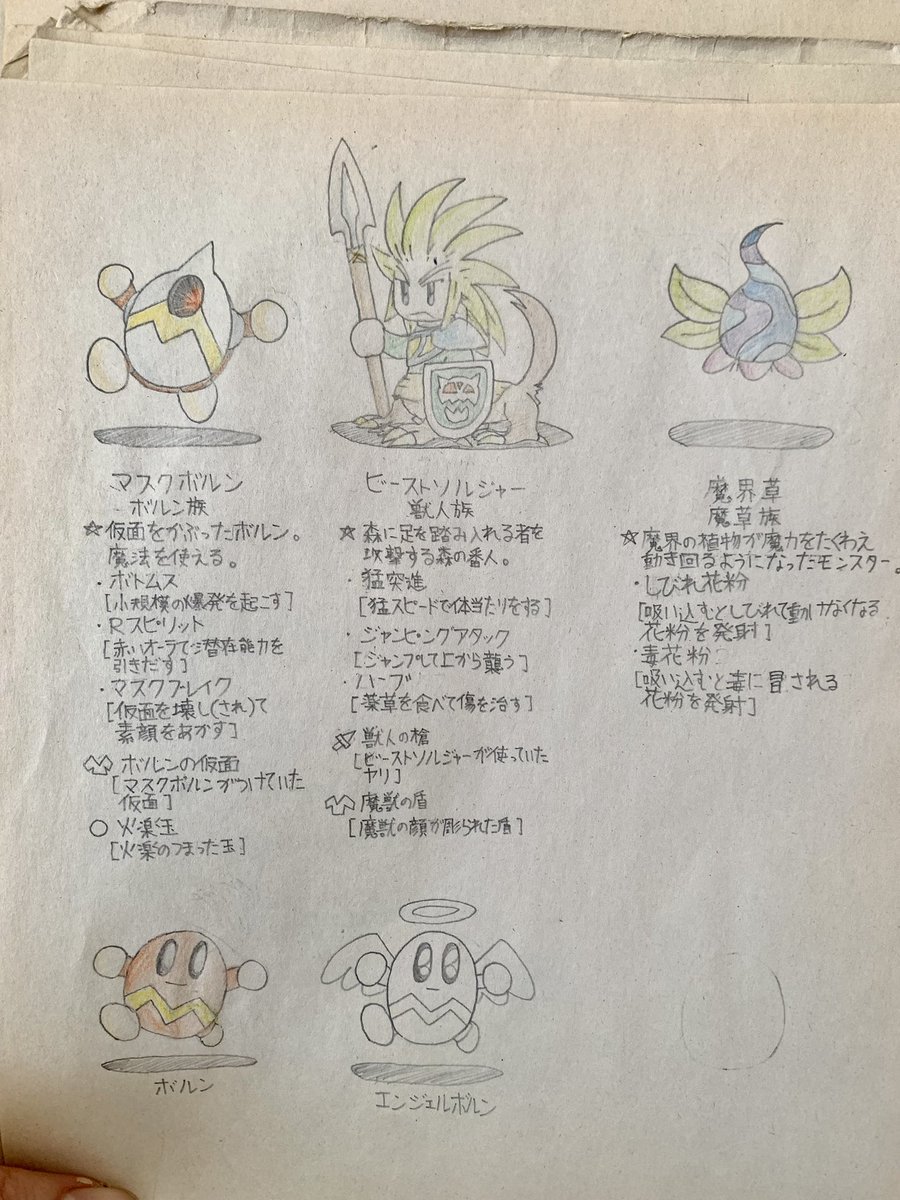 マスクボルン
ボルン族
☆仮面をかぶったボルン。
魔法を使える。
・ボトムス
[小規模の爆発を起こす]
・Rスピリット
[赤いオーラで潜在能力を
引きだす]
・マスクブレイク
[仮面を壊し(され)て
素顔をあかす]
ボルンの仮面
[マスクボルンがつけていた
仮面]
火楽玉
[火楽のつまった玉]
ビーストソルジャー
獣人族
☆森に足を踏み入れる者を
攻撃する森の番人。
・猛突進
[猛スピードで体当たりをする]
・ジャンピングアタック
[ジャンプして上から襲う]
・ハーブ
[薬草を食べて傷を治す]
獣人の槍
[ビーストソルジャーが使っていた
ヤリ]
魔獣の盾
[魔獣の顔が彫られた盾]
魔界草
魔草族
☆魔界の植物が魔力をたくわえ
動き回るようになったモンスター。
・しびれ花粉
[吸い込むとしびれて動けなくなる
花粉を発射]
・毒花粉
[吸い込むと毒に冒される
花粉を発射]
ボルン
エンジェルボルン